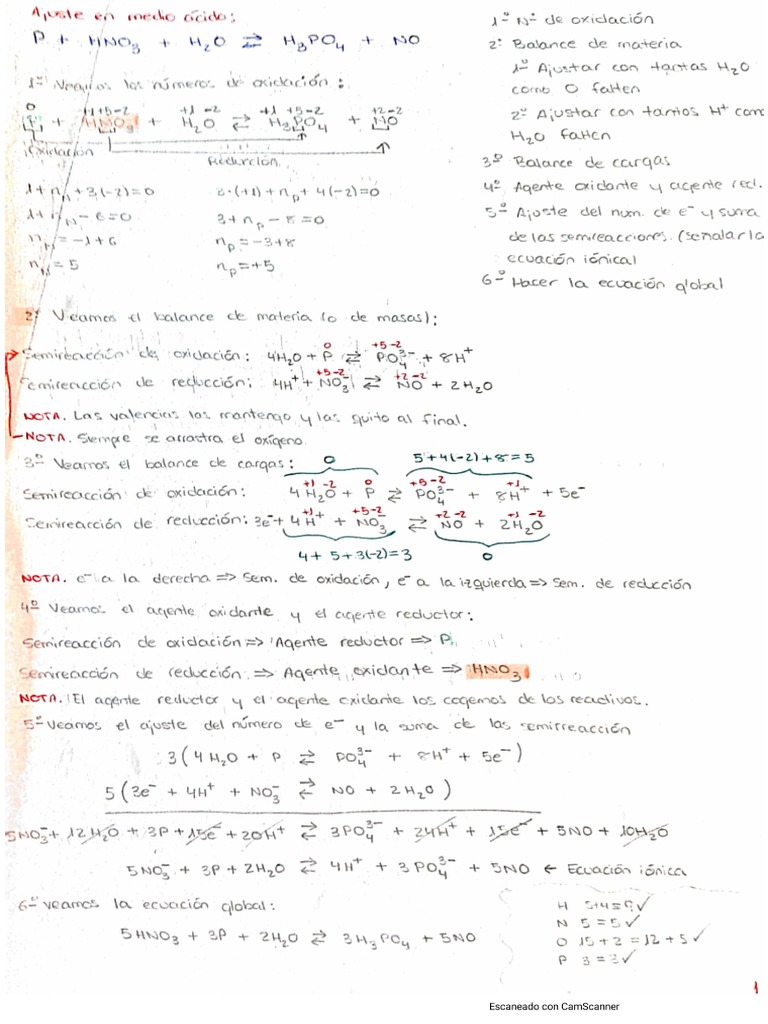 Ajuste en medio ácido:
P + HNO₃ + H₂O ⇄ H₃PO₄ + NO
1º Veamos los números de oxidación:
0 +1+5-2 +1 -2 +1 +5-2 +2-2
P + HNO₃ + H₂O ⇄ H₃PO₄ + NO
Oxidación
Reducción
1 + n_N + 3(-2) = 0 3·(+1) + n_P + 4(-2) = 0
1 + n_N - 6 = 0 3 + n_P - 8 = 0
n_N = -1 + 6 n_P = -3 + 8
n_N = 5 n_P = +5
1º Nº de oxidación
2º Balance de materia
1º Ajustar con tantas H₂O
como O falten
2º Ajustar con tantos H⁺ como
H₂O falten
3º Balance de cargas
4º Agente oxidante y agente red.
5º Ajuste del num. de e⁻ y suma
de las semireacciones. (señalar la
ecuación iónica)
6º Hacer la ecuación global
2º Veamos el balance de materia (o de masas):
0 +5-2
Semireacción de oxidación: 4H₂O + P ⇄ PO₄³⁻ + 8H⁺
+5-2 +2-2
Semireacción de reducción: 4H⁺ + NO₃⁻ ⇄ NO + 2H₂O
NOTA. Las valencias las mantengo y las quito al final.
NOTA. Siempre se arrastra el oxígeno.
3º Veamos el balance de cargas: 0 5+4(-2)+8=5
+1 -2 0 +5-2 +1
Semireacción de oxidación: 4H₂O + P ⇄ PO₄³⁻ + 8H⁺ + 5e⁻
+1 +5-2 +2 -2 +1 -2
Semireacción de reducción: 3e⁻ + 4H⁺ + NO₃⁻ ⇄ NO + 2H₂O
4+5+3(-2)=3 0
NOTA. e⁻ a la derecha ⇒ Sem. de oxidación, e⁻ a la izquierda ⇒ Sem. de reducción
4º Veamos el agente oxidante y el agente reductor:
Semireacción de oxidación ⇒ Agente reductor ⇒ P
Semireacción de reducción ⇒ Agente oxidante ⇒ HNO₃
NOTA. El agente reductor y el agente oxidante los cogemos de los reactivos.
5º Veamos el ajuste del número de e⁻ y la suma de las semirreacción
3(4H₂O + P ⇄ PO₄³⁻ + 8H⁺ + 5e⁻)
5(3e⁻ + 4H⁺ + NO₃⁻ ⇄ NO + 2H₂O)
5NO₃⁻ + 12H₂O + 3P + 15e⁻ + 20H⁺ ⇄ 3PO₄³⁻ + 24H⁺ + 15e⁻ + 5NO + 10H₂O
5NO₃⁻ + 3P + 2H₂O ⇄ 4H⁺ + 3PO₄³⁻ + 5NO ← Ecuación iónica
6º Veamos la ecuación global:
5HNO₃ + 3P + 2H₂O ⇄ 3H₃PO₄ + 5NO
H 5+4=9 ✓
N 5=5 ✓
O 15+2=12+5 ✓
P 3=3 ✓
1
Escaneado con CamScanner